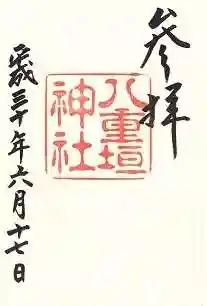 参拝
八重垣
神社
平成三十年六月十七日